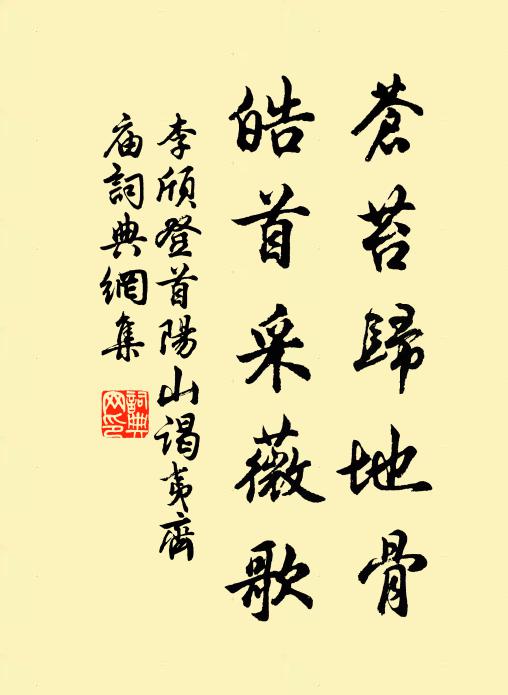 蒼苔歸地骨
皓首采薇歌
李頎登首陽山謁夷齊
廟詞典網集
詞典
网印